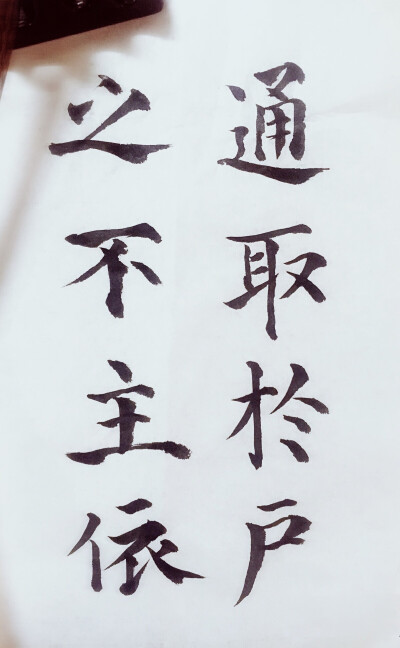 通取於户
之不主依